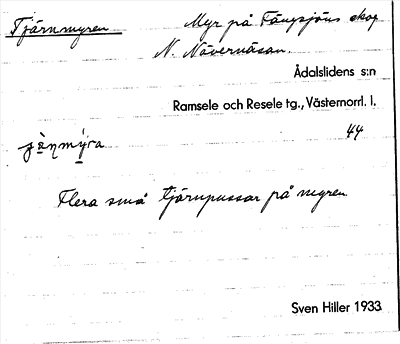 Tjärnmyren Myr på Fängsjöns skog
N. Näveråsen.
Ådalslidens s:n
Ramsele och Resele tg., Västernorrl. l.
44
Flera små tjärnpussar på myren
Sven Hiller 1933